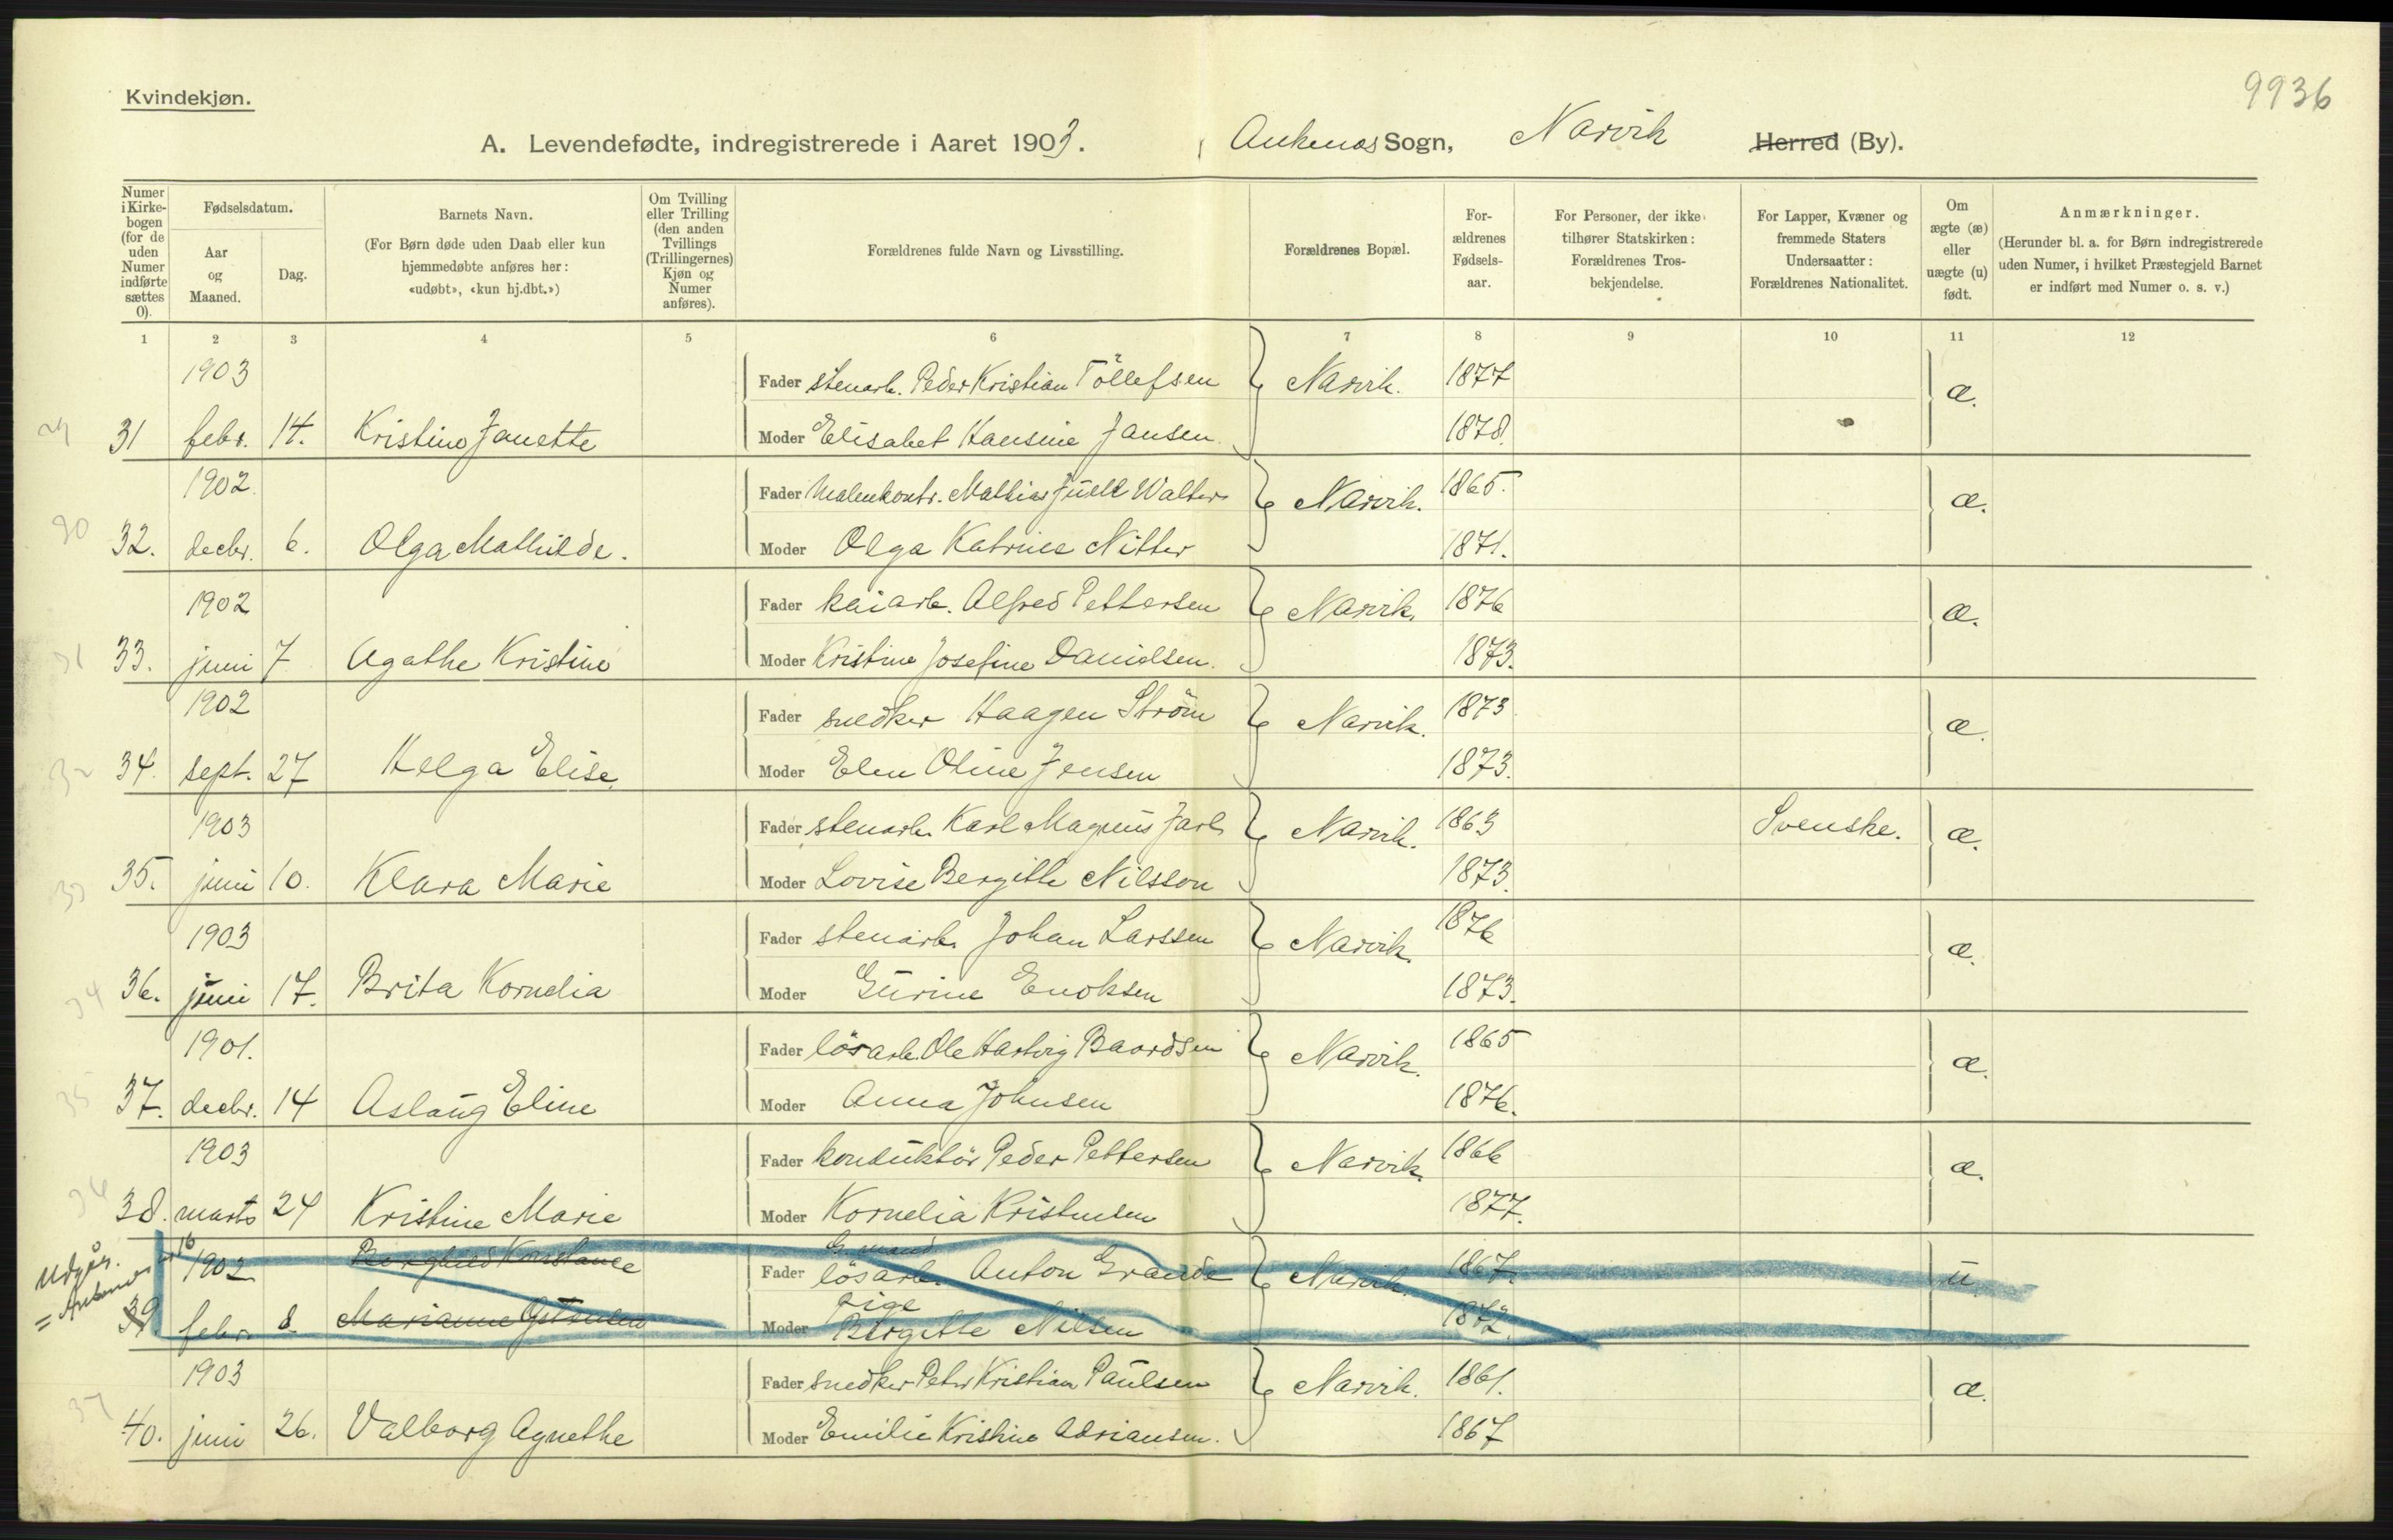 9936
Kvindekjøn.
A. Levendefødte, indregistrerede i Aaret 1903. Ankenæs Sogn, Narvik Herred (By).
Numer i Kirkebogen (for de uden Numer indførte sættes 0).
Fødselsdatum.
Aar og Maaned.
Dag.
Barnets Navn.
(For Børn døde uden Daab eller kun hjemmedøbte anføres her: «udøbt», «kun hj.dbt.»)
Om Tvilling eller Trilling (den anden Tvillings (Trillingernes) Kjøn og Numer anføres).
Forældrenes fulde Navn og Livsstilling.
Forældrenes Bopæl.
Forældrenes Fødselsaar.
For Personer, der ikke tilhører Statskirken: Forældrenes Trosbekjendelse.
For Lapper, Kvæner og fremmede Staters Undersaatter: Forældrenes Nationalitet.
Om ægte (æ) eller uægte (u) født.
Anmærkninger.
(Herunder bl. a. for Børn indregistrerede uden Numer, i hvilket Præstegjeld Barnet er indført med Numer o. s. v.)
1 2 3 4 5 6 7 8 9 10 11 12
1903 Fader stenarb. Peder Kristian Töllefsen Narvik. 1877 æ.
29 31 febr. 14. Kristine Janette Moder Elisabet Hansine Jansen. 1878.
1902. Fader Malenkontr. Mathias Juell Walters Narvik. 1865. æ.
30 32. decbr. 6. Olga Mathilde. Moder Olga Katrine Nitter 1871.
1902 Fader kaiarb. Alfred Pettersen Narvik. 1876 æ.
31 33. juni 7 Agathe Kristine Moder Kristine Josefine Danielsen. 1873.
1902 Fader snedker Haagen Ström Narvik. 1873 æ.
32 34. sept. 27 Helga Elise. Moder Elen Oline Jensen 1873.
1903 Fader stenarb. Karl Magnus Jarl Narvik. 1863 Svenske. æ.
33 35. juni 10. Klara Marie Moder Lovise Bergitte Nilsson 1873.
1903 Fader stenarb. Johan Larssen Narvik. 1876 æ.
34 36. juni 17. Brita Kornelia Moder Gurine Enoksen 1873.
1901. Fader lösarb. Ole Hartvig Baardsen Narvik. 1865 æ.
35 37. decbr. 14 Aslaug Eline Moder Anna Johnsen 1876.
1903 Fader konduktör Peder Pettersen Narvik. 1866 æ.
36 38. marts 24 Kristine Marie Moder Kornelia Kristensen 1877.
Udgår. G. mand
1902 Borghild Konstance Fader lösarb. Anton Grande Narvik. 1867. u.
= Ankenes pige
39 febr. 8. Marianne Moder Birgitte Nilsen 1872.
1903 Fader snedker Peter Kristian Paulsen Narvik. 1861. æ.
37 40. juni 26. Valborg Agnethe Moder Emilie Kristine Adriansen. 1867